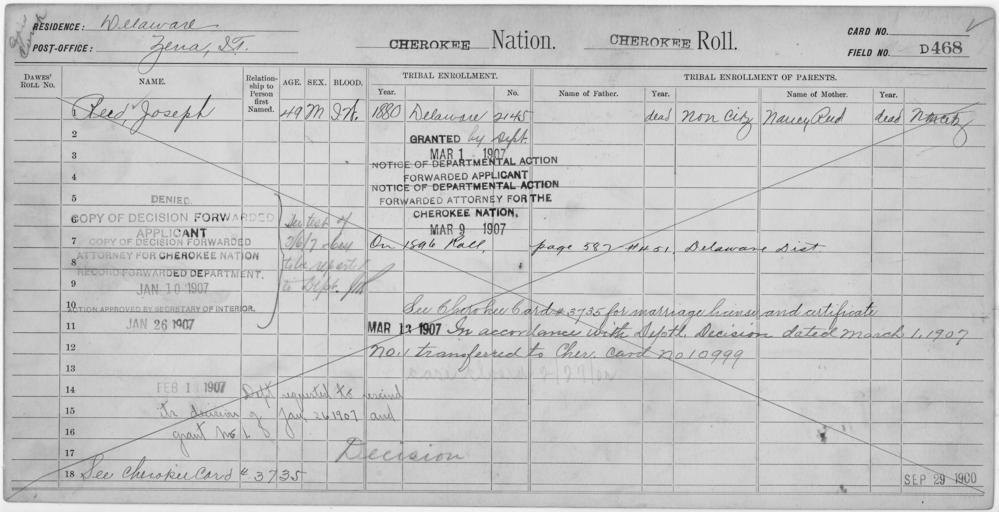 RESIDENCE: Delaware
POST-OFFICE: Zena, I.T.
CHEROKEE Nation. CHEROKEE Roll.
CARD NO.
FIELD NO. D468
DAWES' ROLL NO. NAME. Relationship to Person first Named. AGE. SEX. BLOOD. TRIBAL ENROLLMENT. Year. No. TRIBAL ENROLLMENT OF PARENTS. Name of Father. Year. Name of Mother. Year.
1 Reed, Joseph 49 M I.W. 1880 Delaware 2145 dead Non Citz Nancy Reed dead Non Citz
2 GRANTED by Dept.
MAR 1 1907
3 NOTICE OF DEPARTMENTAL ACTION
4 FORWARDED APPLICANT
NOTICE OF DEPARTMENTAL ACTION
5 DENIED. FORWARDED ATTORNEY FOR THE
6 COPY OF DECISION FORWARDED CHEROKEE NATION.
APPLICANT MAR 9 1907
7 COPY OF DECISION FORWARDED On 1896 Roll, page 587 #451, Delaware Dist
ATTORNEY FOR CHEROKEE NATION
8 to be reported
RECORD FORWARDED DEPARTMENT.
9 JAN 10 1907 to Dept.
10 ACTION APPROVED BY SECRETARY OF INTERIOR. See Cherokee Card #3735 for marriage license and certificate
11 JAN 26 1907 MAR 13 1907 In accordance with Deptl. Decision dated March 1, 1907
12 No. 1 transferred to Cher. Card No 10999
13
14 FEB 1907 Dept requested to rescind
15 its decision of Jan 26 1907 and
16 grant No 1
17 Decision
18 See Cherokee Card #3735 SEP 29 1900